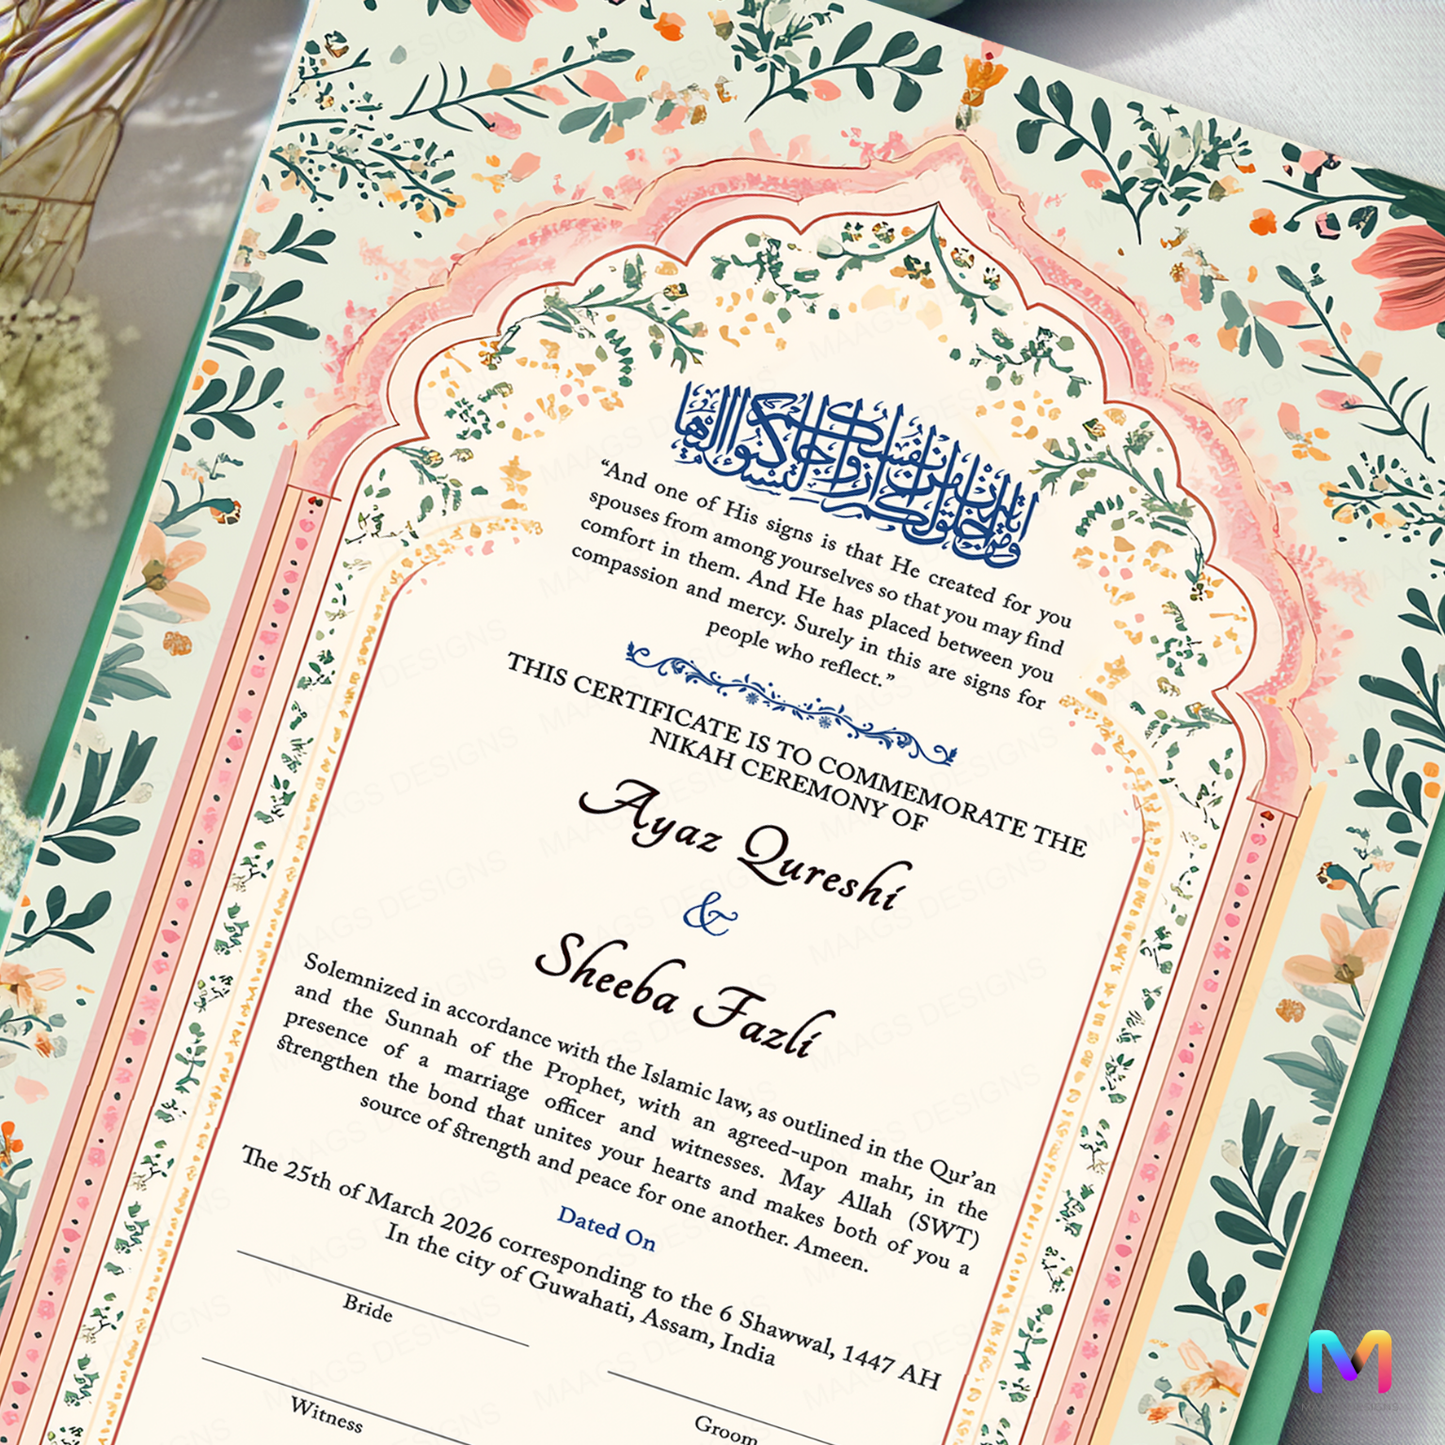 ومن آياته أن خلق لكم من أنفسكم أزواجا لتسكنوا إليها
“And one of His signs is that He created for you
spouses from among yourselves so that you may find
comfort in them. And He has placed between you
compassion and mercy. Surely in this are signs for
people who reflect.”
THIS CERTIFICATE IS TO COMMEMORATE THE
NIKAH CEREMONY OF
Ayaz Qureshi
&
Sheeba Fazli
Solemnized in accordance with the Islamic law, as outlined in the Qur’an
and the Sunnah of the Prophet, with an agreed-upon mahr, in the
presence of a marriage officer and witnesses. May Allah (SWT)
strengthen the bond that unites your hearts and makes both of you a
source of strength and peace for one another. Ameen.
Dated On
The 25th of March 2026 corresponding to the 6 Shawwal, 1447 AH
In the city of Guwahati, Assam, India
Bride
Groom
Witness
M
MAAGS DESIGNS